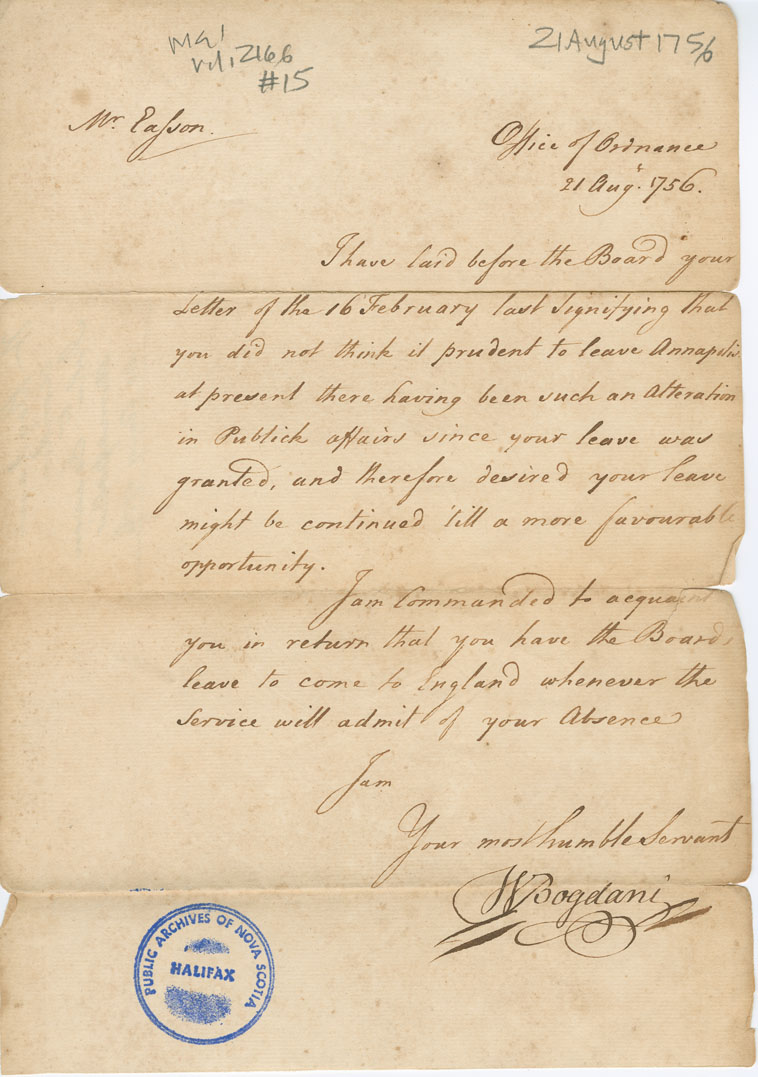 MG1
vol, 2166
#15
21 August 1756
Mr. Easson.
Office of Ordnance
21 Augt. 1756.
I have laid before the Board your
Letter of the 16 February last signifying that
you did not think it prudent to leave Annapolis
at present there having been such an Alteration
in Publick affairs since your leave was
granted, and therefore desired your leave
might be continued 'till a more favourable
opportunity.
I am Commanded to acquaint
you in return that you have the Boards
leave to come to England whenever the
Service will admit of your Absence
I am
Your most humble Servant
WBogdani
PUBLIC ARCHIVES OF NOVA SCOTIA
HALIFAX